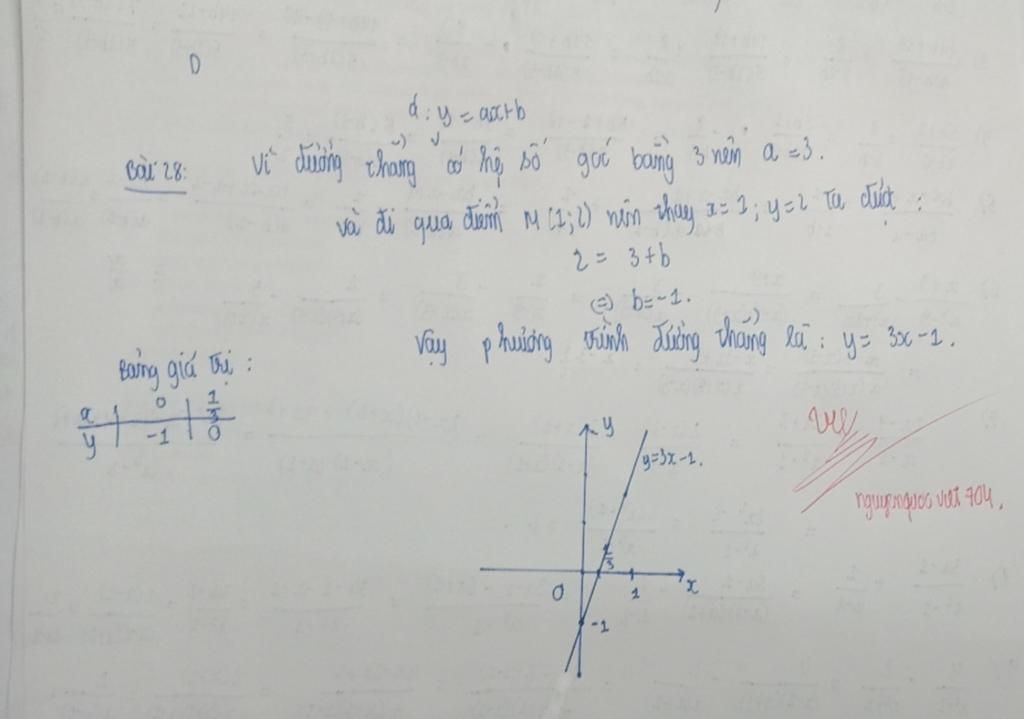 D
d: y = ax+b
Bài 28: Vì đường thẳng có hệ số góc bằng 3 nên a = 3.
và đi qua điểm M(1;2) nên thay x=1; y=2 ta được:
2 = 3+b
(=) b=-1.
Vậy phương trình đường thẳng là: y= 3x-1.
Bảng giá trị:
x | 0 | 1/3
y | -1 | 0
y
y=3x-1.
1/3
0 1 x
-1
nguyenquocviet704.